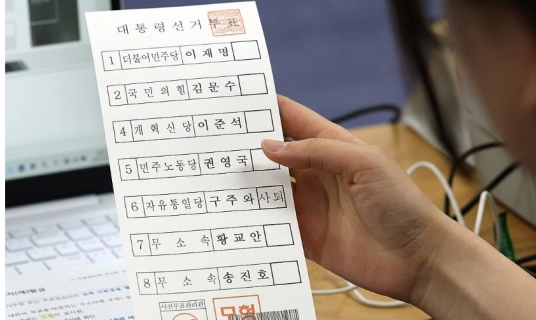 대통령선거투표
1 더불어민주당 이재명
2 국민의힘 김문수
4 개혁신당 이준석
5 민주노동당 권영국
6 자유통일당 구주와 사퇴
7 무소속 황교안
8 무소속 송진호
사전투표관리관
모형